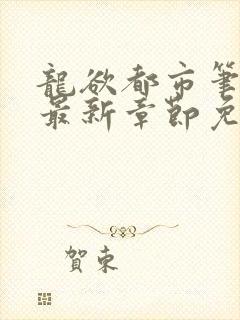 龍欲都市筆
最新章節免
賀東